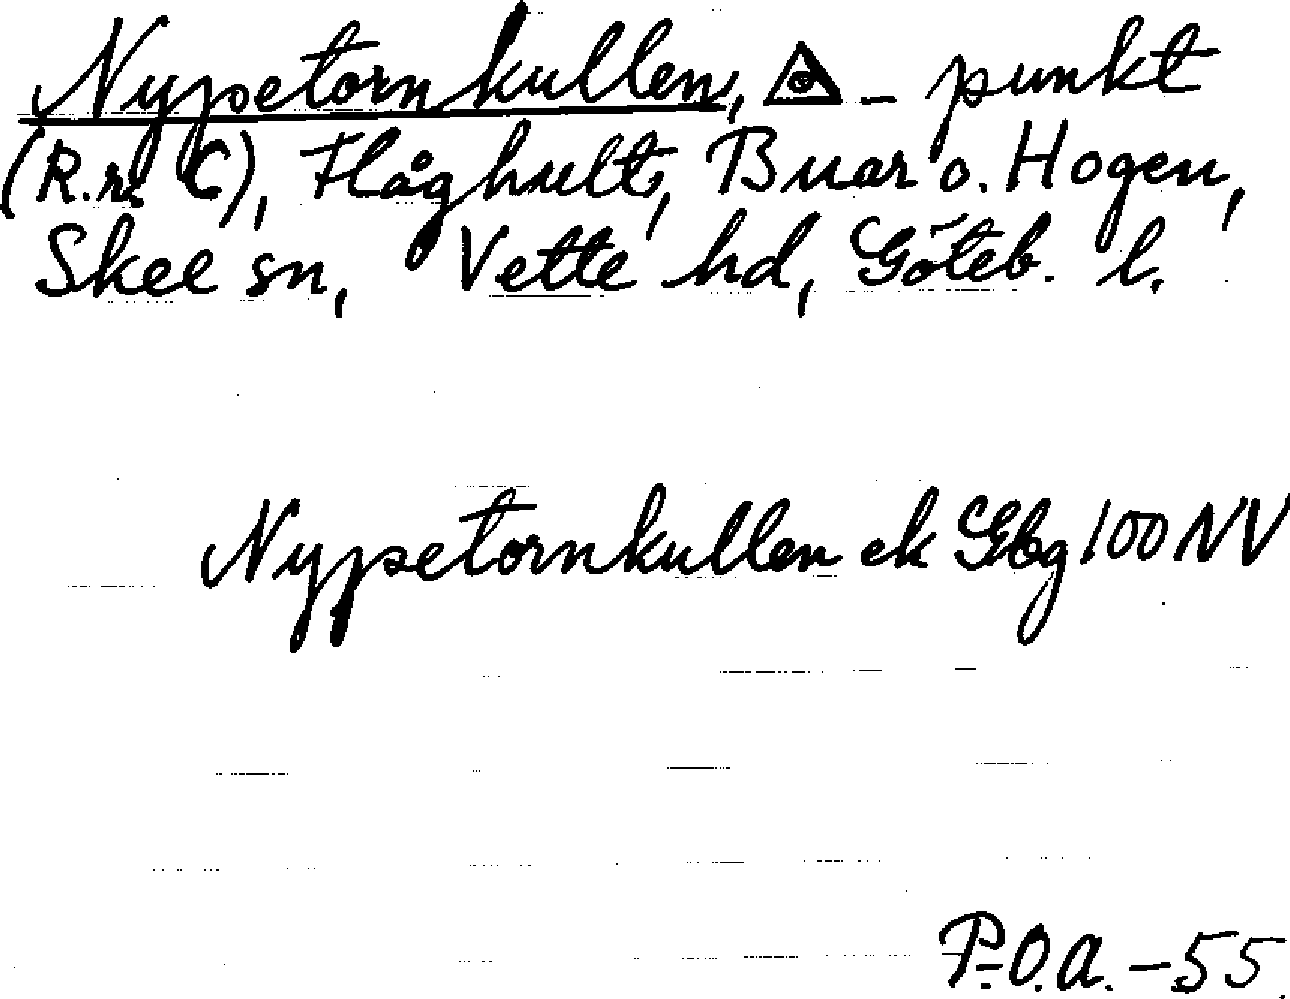 Nypetornkullen, △ - punkt
(R.m. C), Flåghult, Buar o. Hogen,
Skee sn, Vette hd, Göteb. l.
Nypetornkullen ek Gbg 100 NV
P.O.A. - 55.